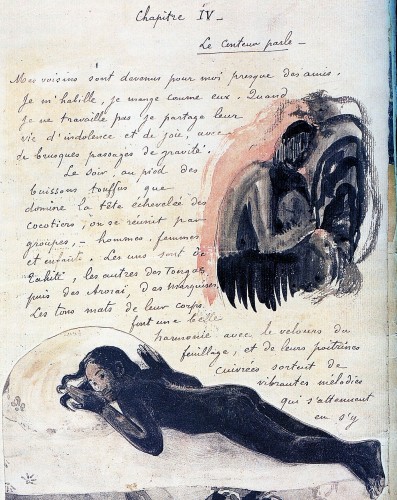 Chapitre IV –
Le Conteur parle –
Mes voisins sont devenus pour moi presque des amis.
Je m'habille, je mange comme eux. Quand
je ne travaille pas je partage leur
vie d'indolence et de joie, avec
de brusques passages de gravité.
Le soir, au pied des
buissons touffus que
domine la tête échevelée des
cocotiers, on se réunit par
groupes, – hommes, femmes
et enfants. Les uns sont de
Tahiti, les autres des Tongas,
puis des Arorai, des Marquises.
Les tons mats de leur corps
font une belle
harmonie avec le velours du
feuillage, et de leurs poitrines
cuivrées sortent de
vibrantes mélodies
qui s'atténuent
en s'y